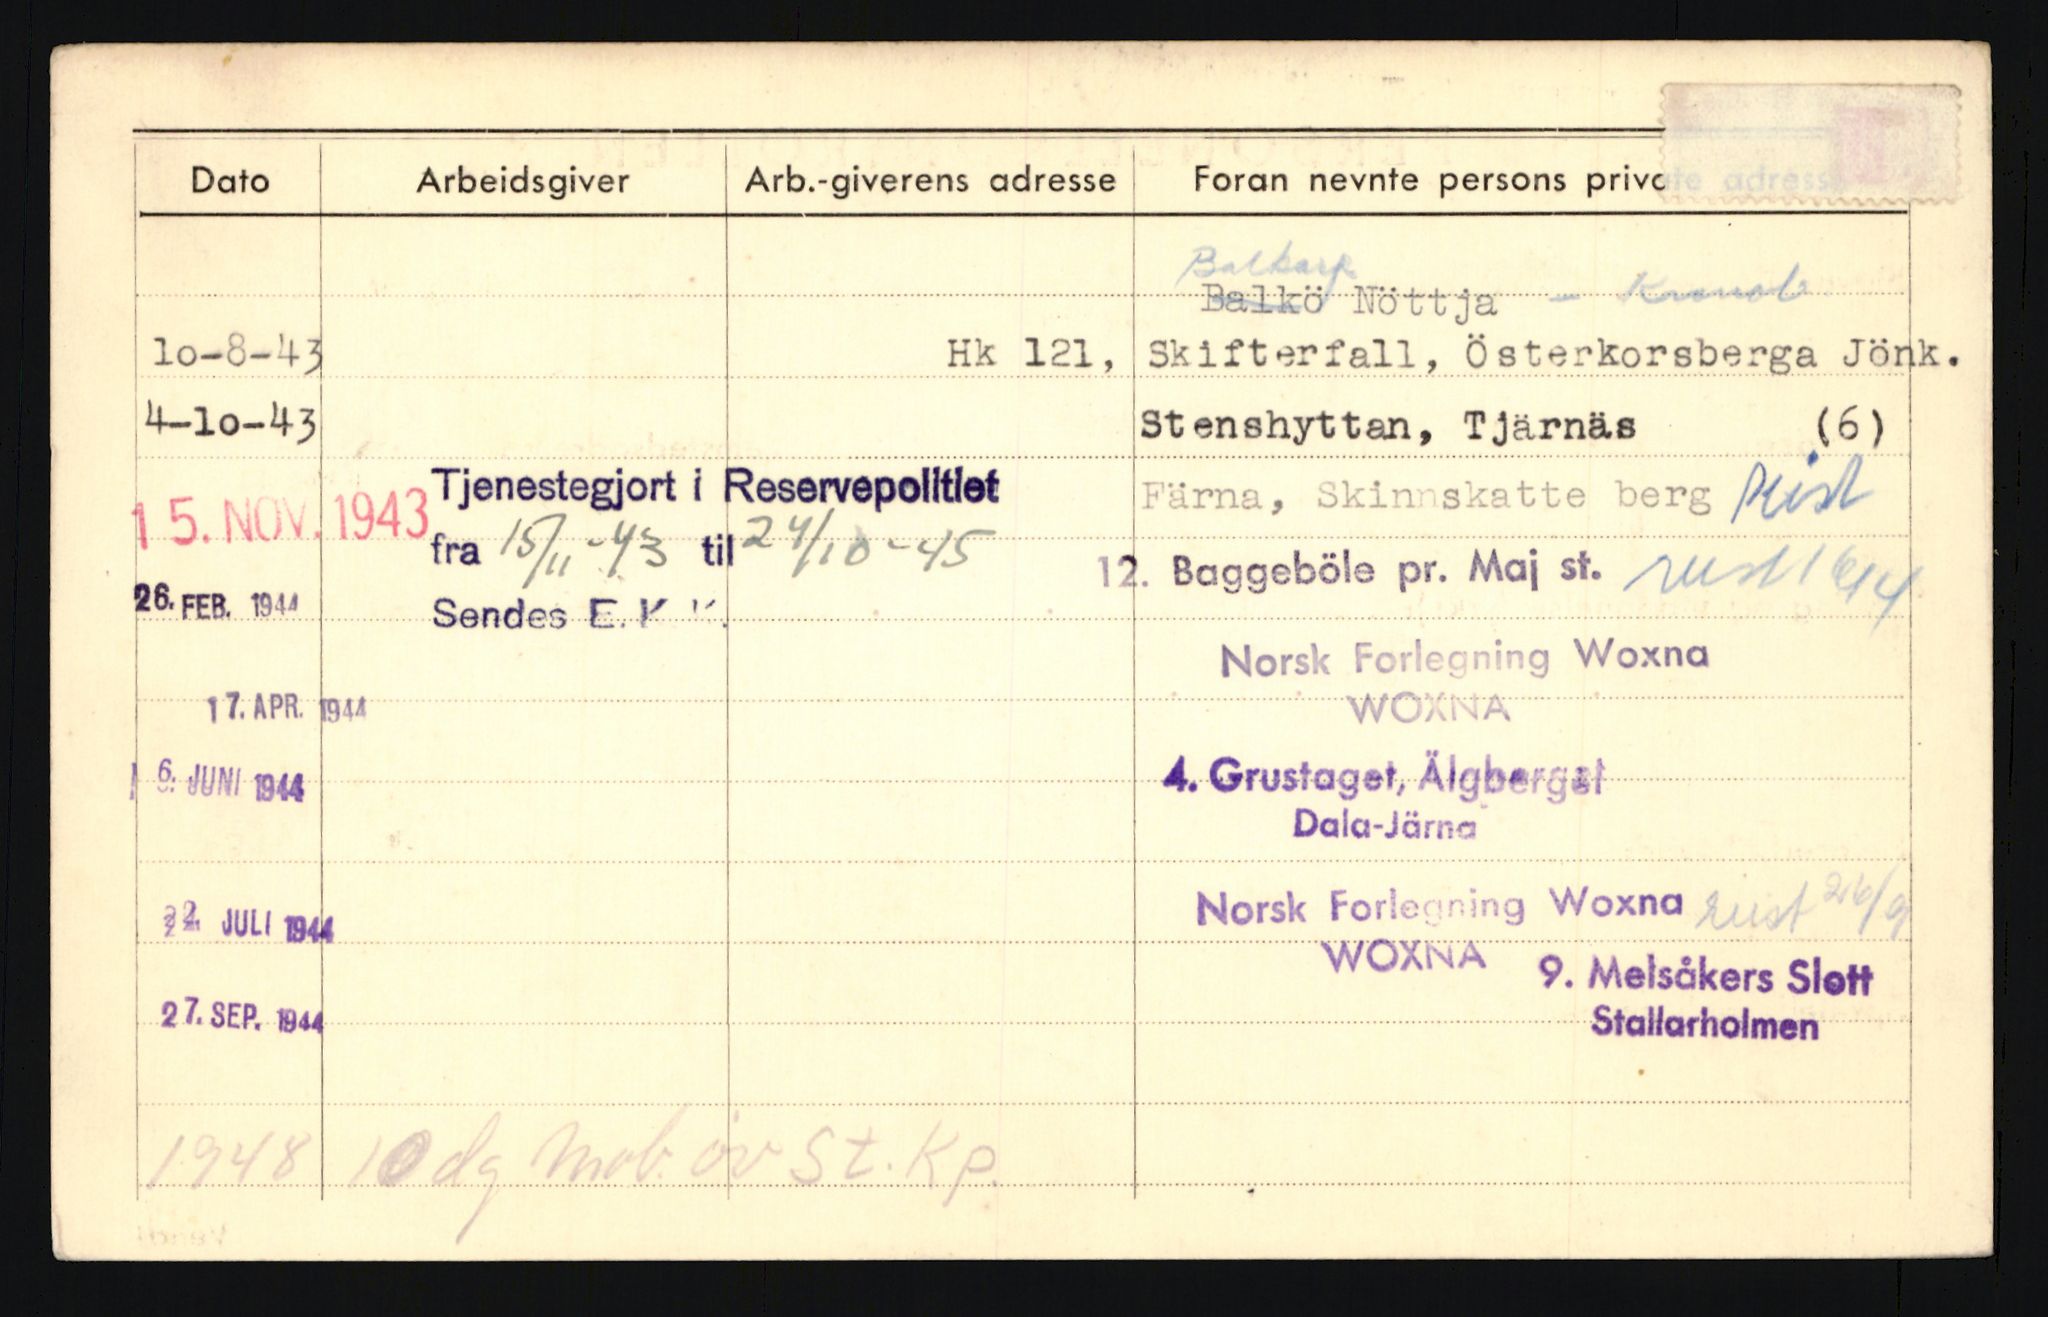 Dato Arbeidsgiver Arb.-giverens adresse Foran nevnte persons private adresse
Balkarp
Balkö Nöttja - Kronob
10-8-43 Hk 121, Skifterfall, Österkorsberga Jönk.
4-10-43 Stenshyttan, Tjärnäs (6)
15. NOV. 1943 Tjenestegjort i Reservepolitiet Färna, Skinnskatte berg
fra 15/11-43 til 24/10-45
12. Baggeböle pr. Maj st.
26. FEB. 1944 Sendes E.K.K.
Norsk Forlegning Woxna
17. APR. 1944 WOXNA
16. JUNI 1944 4. Grustaget, Älgberget
Dala-Järna
22. JULI 1944 Norsk Forlegning Woxna rust 26/9
WOXNA
9. Melsåkers Slott
27. SEP. 1944 Stallarholmen
1948 10 dg Mob. öv St. Kp.